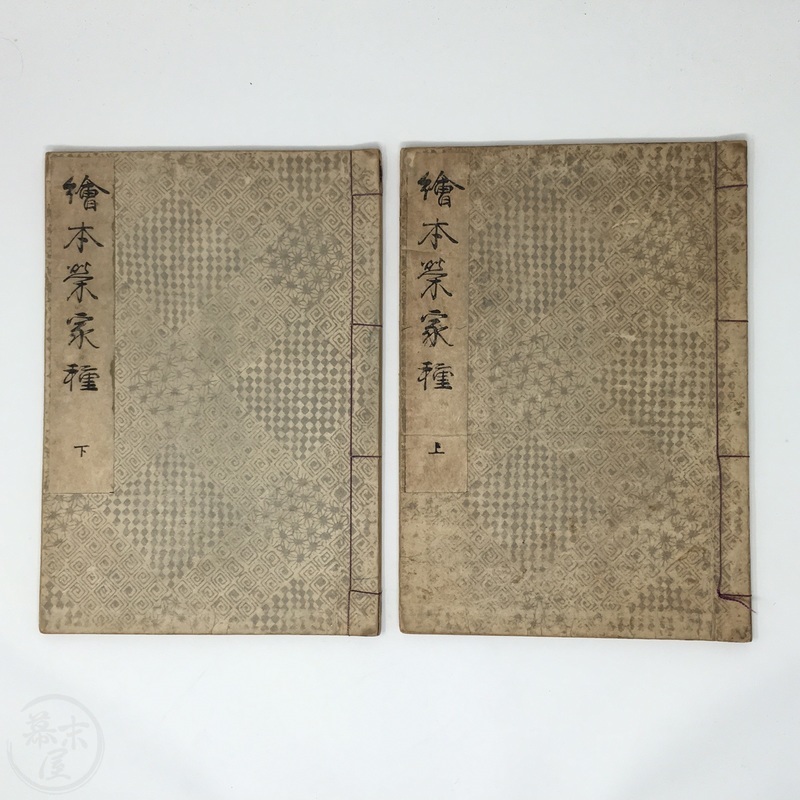 繪本榮家種
上
繪本榮家種
下
幕末屋